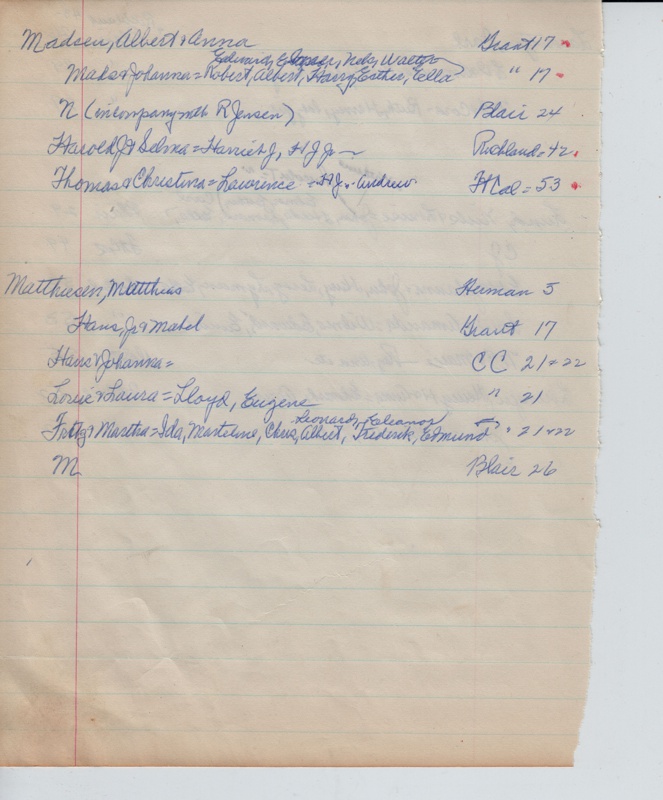 Madsen, Albert & Anna Grant 17
Edward, Elmer, Nels, Walter
Mads & Johanna = Robert, Albert, Harry, Esther, Ella " 17
N (in company with R Jensen) Blair 24
Harold J & Selma = Harriet J, H J Jr Richland = 42
Thomas & Christina = Lawrence = H J. Andrew Ft Cal = 53
Matthiesen, Matthias Herman 5
Hans, Jr & Mabel Grant 17
Hans & Johanna = CC 21 & 22
Louie & Laura = Lloyd, Eugene " 21
Leonard, Eleanor
Fritz & Martha = Ida, Madeline, Chris, Albert, Frederik, Edmund " 21 & 22
M Blair 26